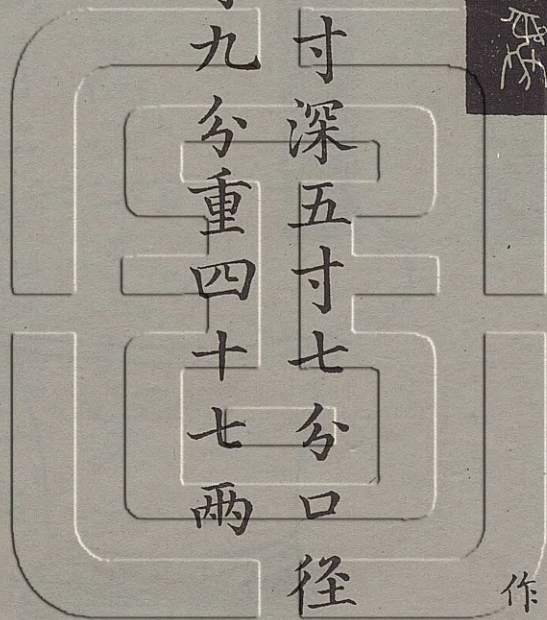 作
寸深五寸七分口径
九分重四十七兩